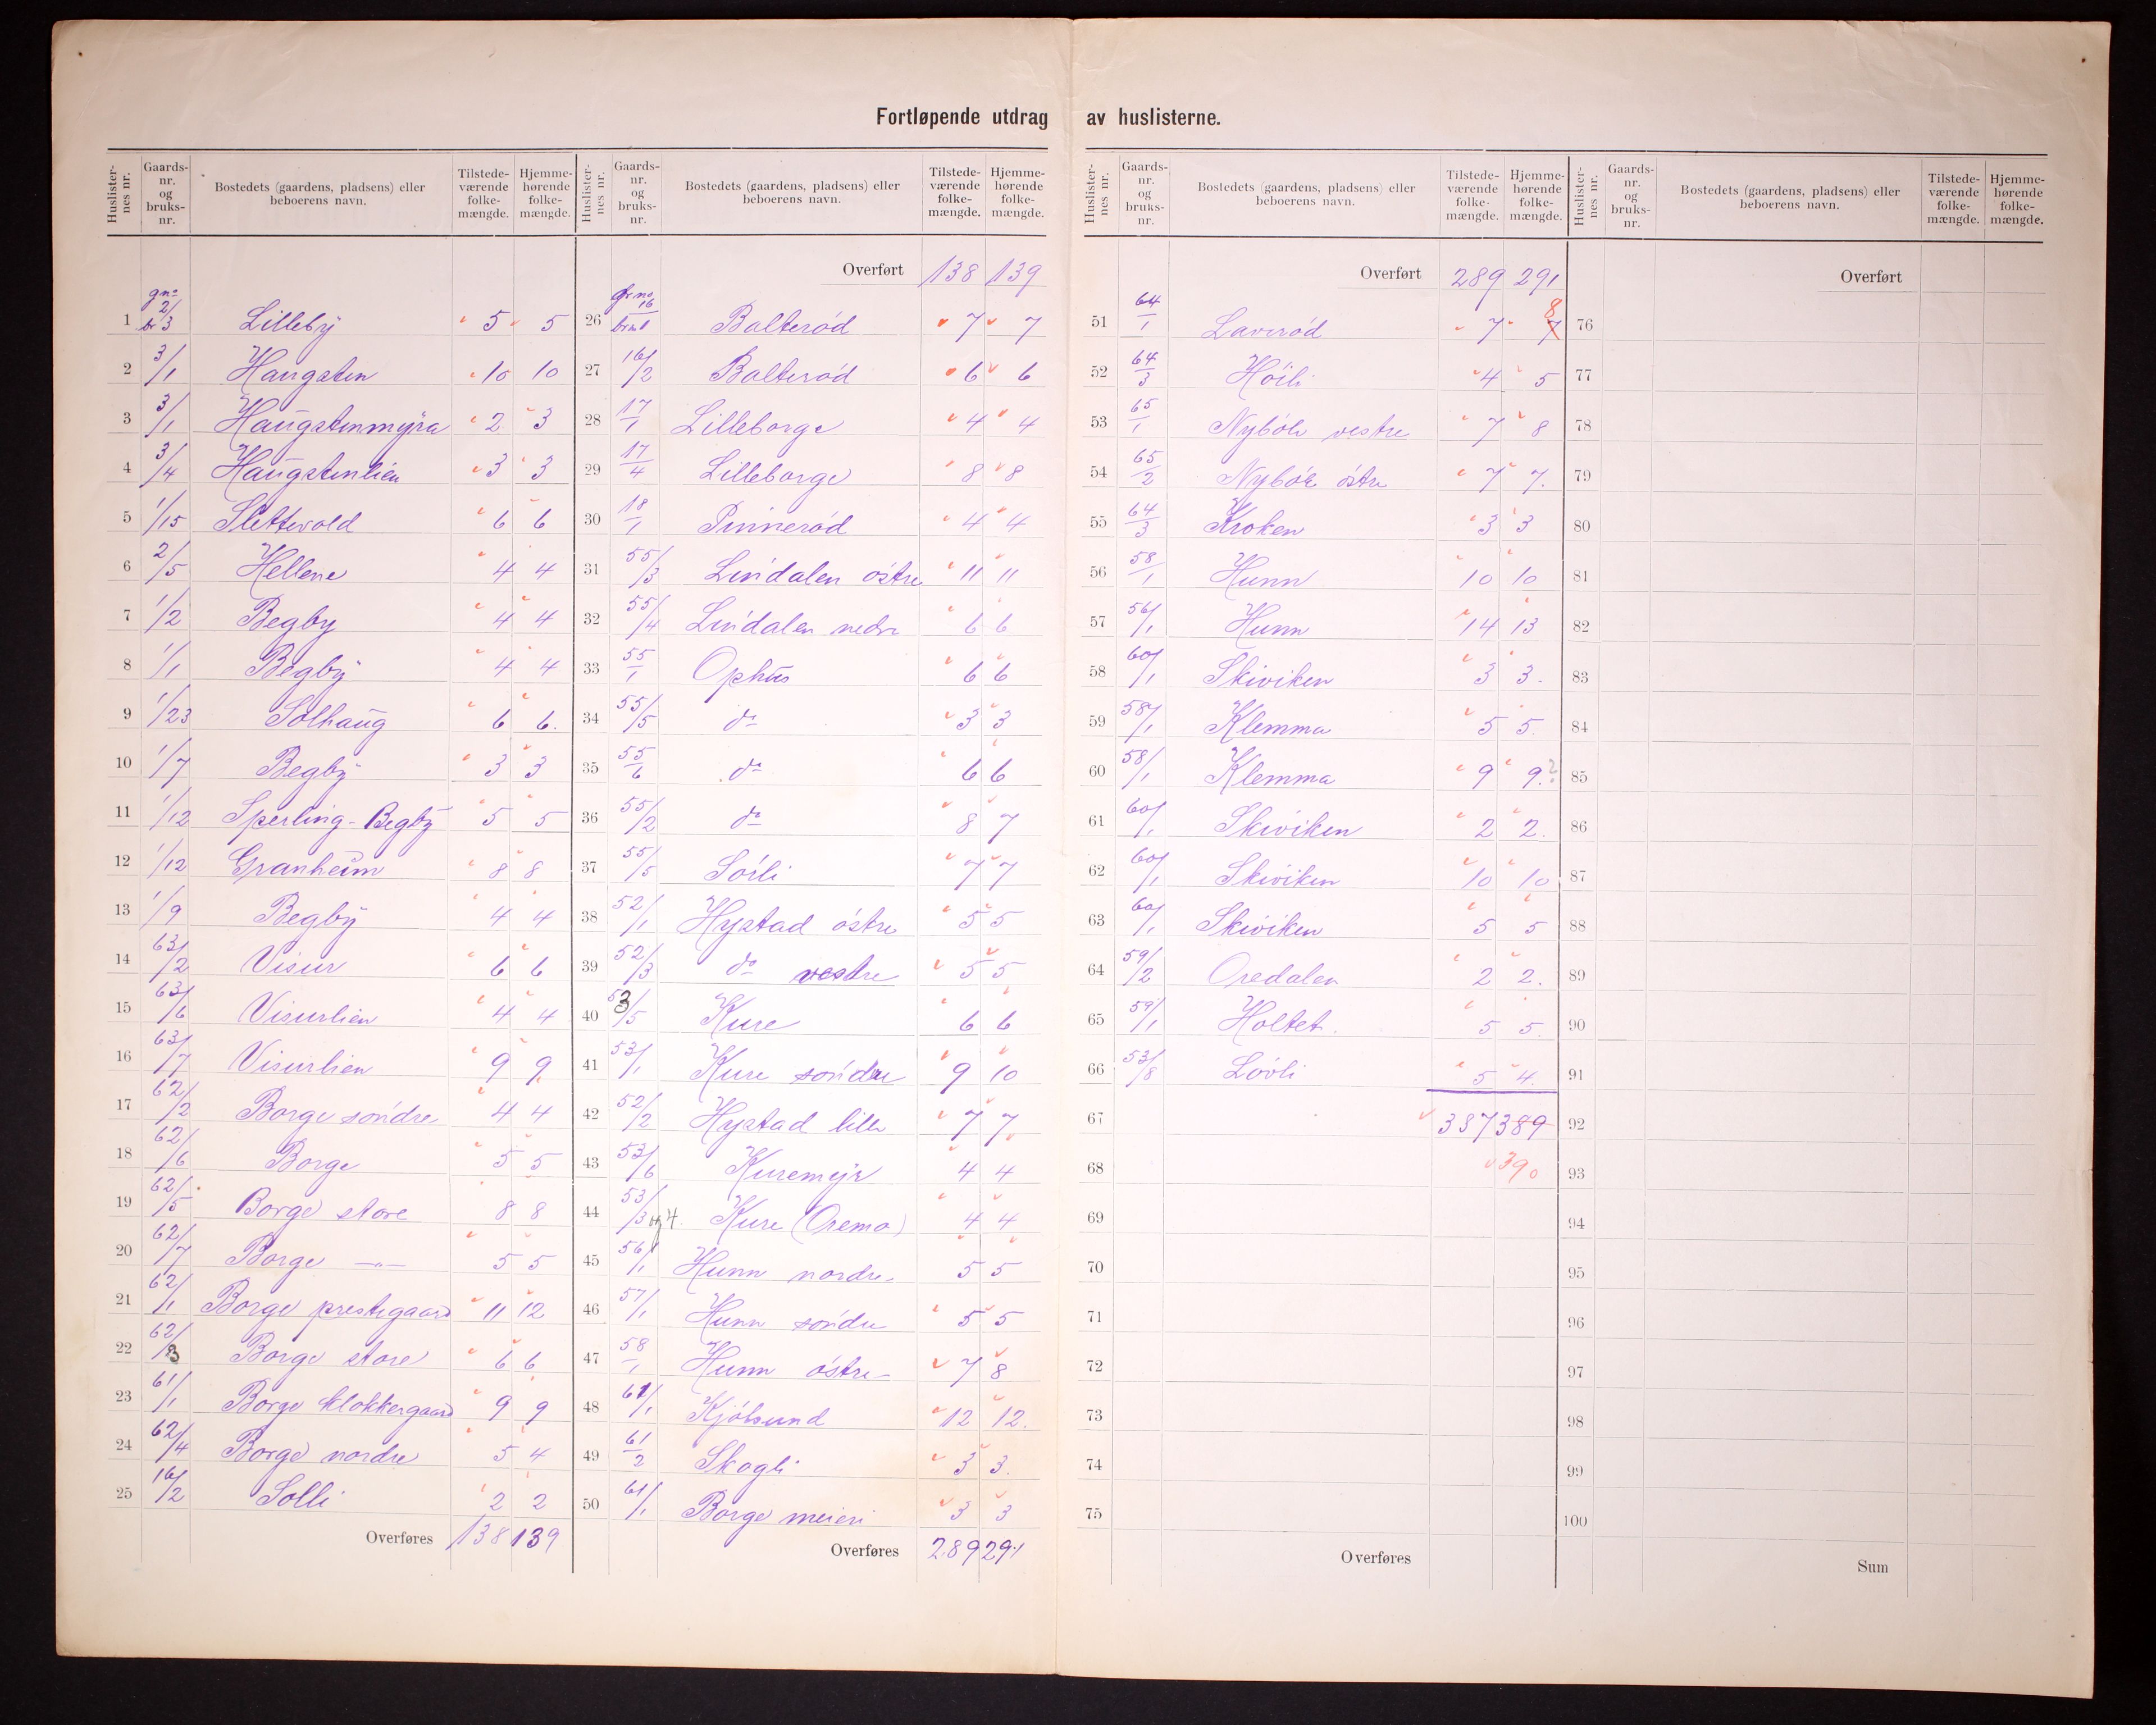 Fortløpende utdrag av huslisterne.
Huslister-nes nr. Gaards-nr. og bruks-nr. Bostedets (gaardens, pladsens) eller beboerens navn. Tilstede-værende folke-mængde. Hjemme-hørende folke-mængde.
1 gno 2/ br 3 Lilleby 5 5
2 3/1 Haugsten 10 10
3 3/1 Haugstenmyra 2 3
4 3/4 Haugstenlien 3 3
5 1/15 Slettevold 6 6
6 2/5 Hellene 4 4
7 1/2 Begby 4 4
8 1/1 Begby 4 4
9 1/23 Solhaug 6 6.
10 1/7 Begby 3 3
11 1/12 Sperling-Begby 5 5
12 1/12 Granheim 8 8
13 1/9 Begby 4 4
14 63/2 Visur 6 6
15 63/6 Visurlien 4 4
16 63/7 Visurlien 9 9
17 62/2 Borge söndre 4 4
18 62/6 Borge 5 5
19 62/5 Borge store 8 8
20 62/7 Borge —"— 5 5
21 62/1 Borge prestegaard 11 12
22 62/3 Borge store 6 6
23 61/1 Borge klokkergaard 9 9
24 62/4 Borge nordre 5 4
25 16/2 Solli 2 2
Overføres 138 139
Huslister-nes nr. Gaards-nr. og bruks-nr. Bostedets (gaardens, pladsens) eller beboerens navn. Tilstede-værende folke-mængde. Hjemme-hørende folke-mængde.
Overført 138 139
26 gr no 16 br no 1 Balterød 7 7
27 16/2 Balterød 6 6
28 17/1 Lilleborge 4 4
29 17/4 Lilleborge 8 8
30 18/1 Pinnerød 4 4
31 55/3 Lindalen östre 11 11
32 55/4 Lindalen nedre 6 6
33 55/1 Ophus 6 6
34 55/5 do 3 3
35 55/6 do 6 6
36 55/2 do 8 7
37 55/5 Sörli 7 7
38 52/1 Hystad östre 5 5
39 52/3 do vestre 5 5
40 53/5 Kure 6 6
41 53/1 Kure söndre 9 10
42 52/2 Hystad lille 7 7
43 53/6 Kuremyr 4 4
44 53/3 og 4. Kure (Oremo) 4 4
45 56/1 Hunn nordre 5 5
46 57/1 Hunn söndre 5 5
47 58/1 Hunn östre 7 8
48 61/1 Kjölsund 12 12.
49 61/2 Skogli 3 3.
50 61/1 Borge meieri 3 3
Overføres 289 291
Huslister-nes nr. Gaards-nr. og bruks-nr. Bostedets (gaardens, pladsens) eller beboerens navn. Tilstede-værende folke-mængde. Hjemme-hørende folke-mængde.
Overført 289 291
51 64/1 Laverød 7 7 8
52 64/3 Höili 4 5
53 65/1 Nyböle vestre 7 8
54 65/2 Nyböle östre 7 7.
55 64/3 Kroken 3 3
56 58/1 Hunn 10 10
57 56/1 Hunn 14 13
58 60/1 Skiviken 3 3.
59 58/1 Klemma 5 5.
60 58/1 Klemma 9 9.?
61 60/1 Skiviken 2 2.
62 60/1 Skiviken 10 10
63 60/1 Skiviken 5 5
64 59/2 Oredalen 2 2.
65 59/1 Holtet. 5 5.
66 53/8 Lövli 5 4.
67 387 389
68 390
69
70
71
72
73
74
75
Overføres
Huslister-nes nr. Gaards-nr. og bruks-nr. Bostedets (gaardens, pladsens) eller beboerens navn. Tilstede-værende folke-mængde. Hjemme-hørende folke-mængde.
Overført
76
77
78
79
80
81
82
83
84
85
86
87
88
89
90
91
92
93
94
95
96
97
98
99
100
Sum